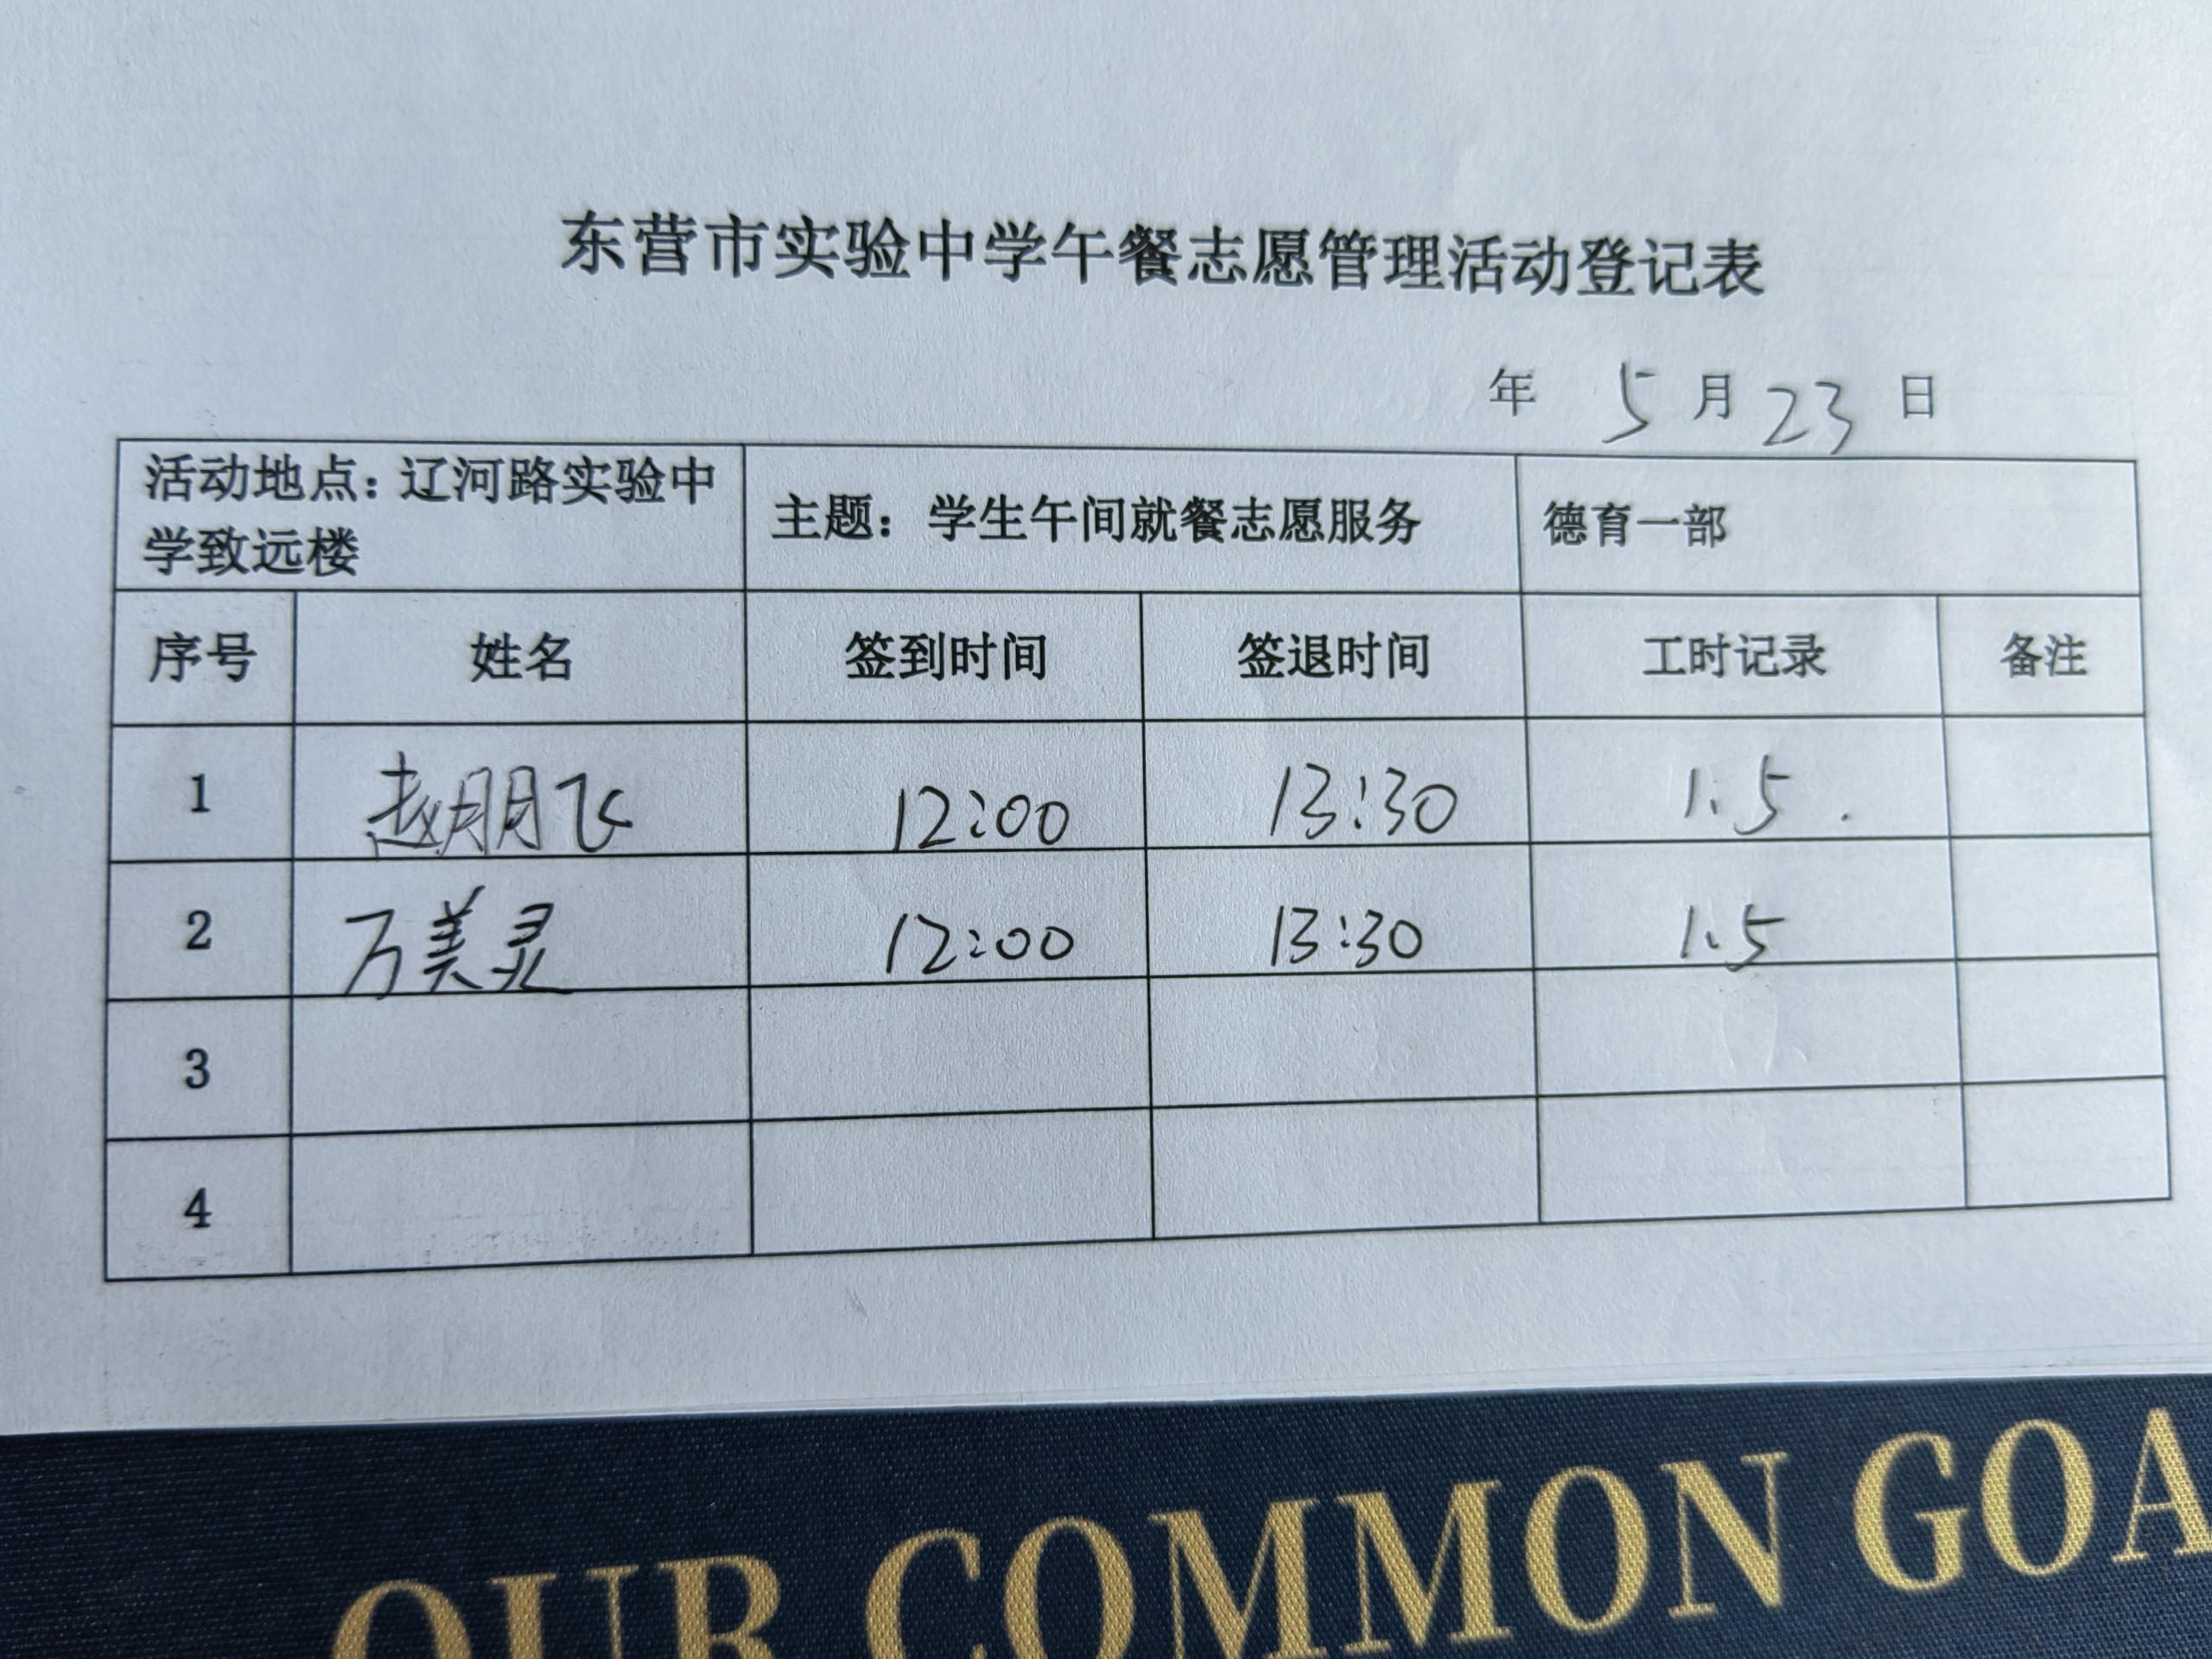 东营市实验中学午餐志愿管理活动登记表
年 5 月 23 日
活动地点：辽河路实验中
学致远楼
主题：学生午间就餐志愿服务
德育一部
序号 姓名 签到时间 签退时间 工时记录 备注
1 赵朋飞 12:00 13:30 1.5.
2 万美灵 12:00 13:30 1.5
3
4
OUR COMMON GOA